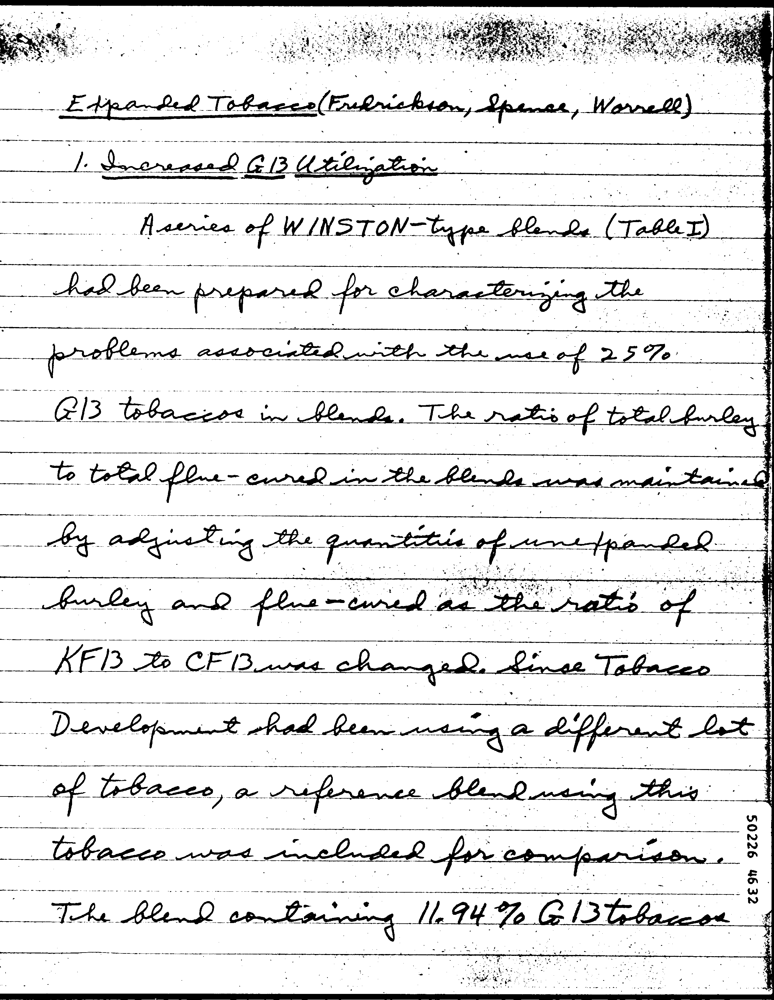 Expanded Tobacco (Fredrickson, Spence, Worrell)
1. Increased G13 Utilization
A series of WINSTON-type blends (Table I)
had been prepared for characterizing the
problems associated with the use of 25%
G13 tobaccos in blends. The ratio of total burley
to total flue-cured in the blends was maintained
by adjusting the quantities of unexpanded
burley and flue-cured as the ratio of
KF13 to CF13 was changed. Since Tobacco
Development had been using a different lot
of tobacco, a reference blend using this
tobacco was included for comparison.
The blend containing 11.94% G13 tobaccos
50226 4632